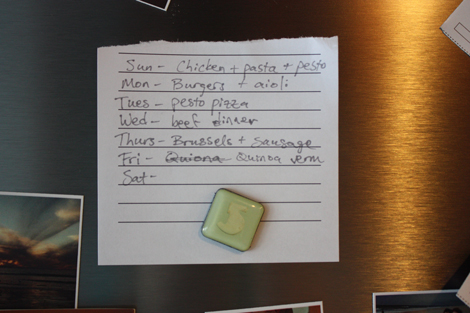 Sun - Chicken + pasta + pesto
Mon - Burgers + aioli
Tues - pesto pizza
Wed - beef dinner
Thurs - Brussels + Sausage
Fri - Quiona Quinoa verm
Sat -
S